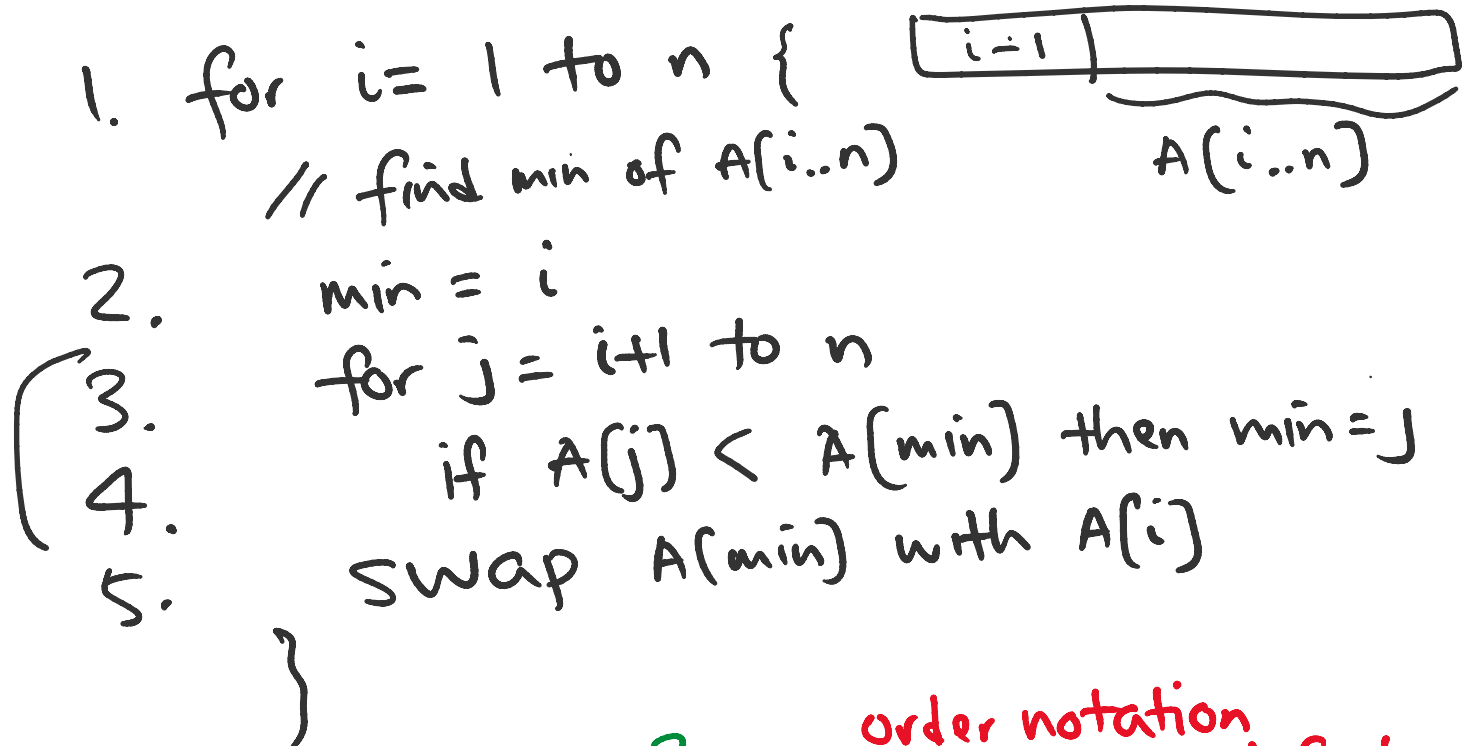 1. for i = 1 to n {
i-1
A[i..n]
// find min of A[i..n]
2. min = i
3. for j = i+1 to n
4. if A[j] < A[min] then min = j
5. swap A[min] with A[i]
}
order notation